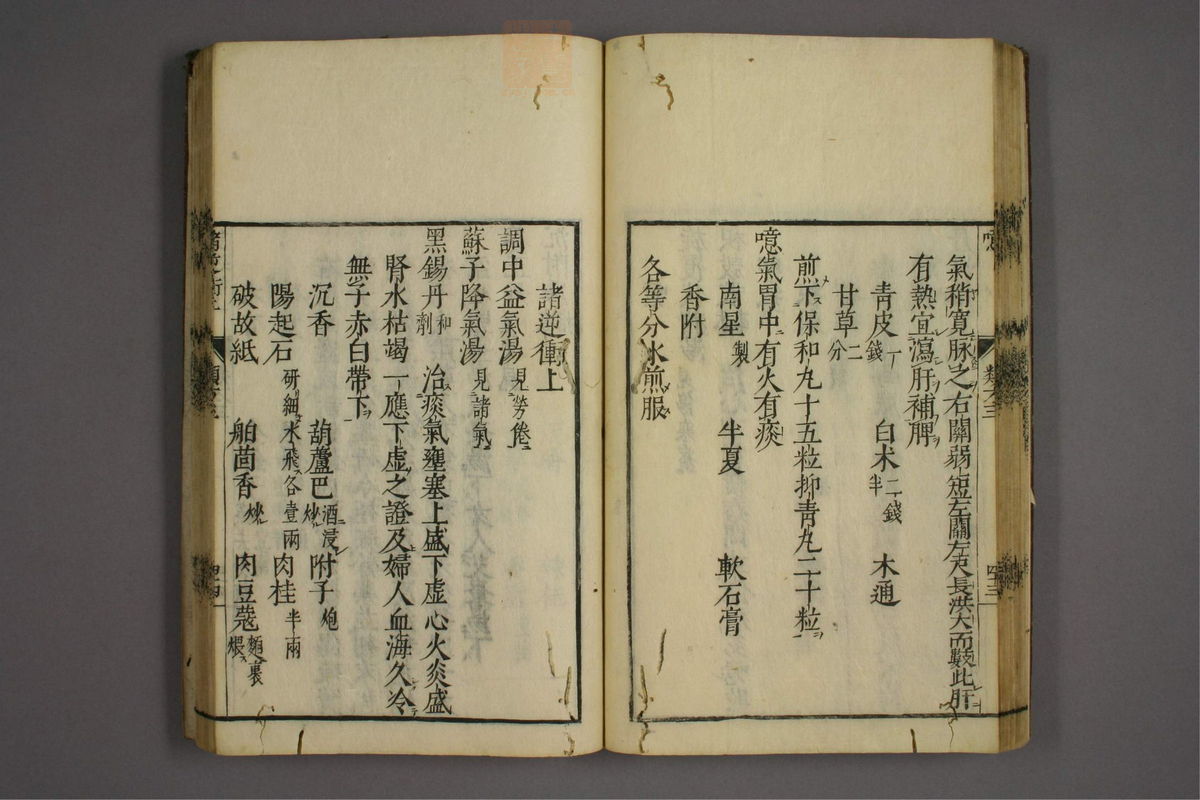 噫
類方三
四十三
氣稍寛脉之右關弱短左關左尺長洪大而數此肝
有熱宜瀉肝補脾
青皮一錢 白朮二錢半 木通
甘草二分
煎下保和丸十五粒抑青丸二十粒
噫氣胃中有火有痰
南星製 半夏 軟石膏
香附
各等分水煎服
諸逆衝上
調中益氣湯見勞倦
蘇子降氣湯見諸氣
黑錫丹和劑 治痰氣壅塞上盛下虛心火炎盛
腎水枯竭一應下虛之證及婦人血海久冷
無子赤白帶下
沉香 葫蘆巴酒浸炒 附子炮
陽起石研細水飛各壹兩 肉桂半兩
破故紙 舶茴香炒 肉豆蔻麵裹煨
四十四